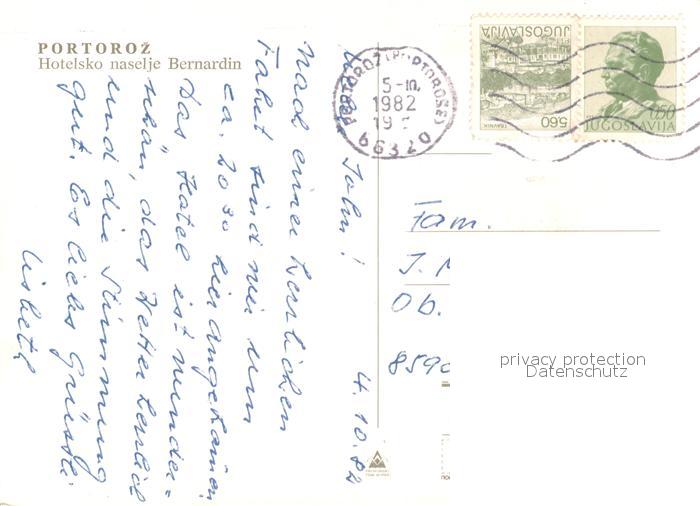 PORTOROŽ
Hotelsko naselje Bernardin
4.10.82
John!
Nach einer herrlichen
Fahrt sind wir um
ca. 20 30 hier angekommen
Das Hotel ist wunder=
schön, das Wetter herrlich
und die Stimmung
gut. Es liebe Grüsse
Lisbeth
JUGOSLAVIJA
TRAVNIK
5.60
0.50
JUGOSLAVIJA
PORTOROŽ (PORTOROSE)
5-10.
1982
19
66320
Fam.
J.
Ob.
8590
privacy protection
Datenschutz